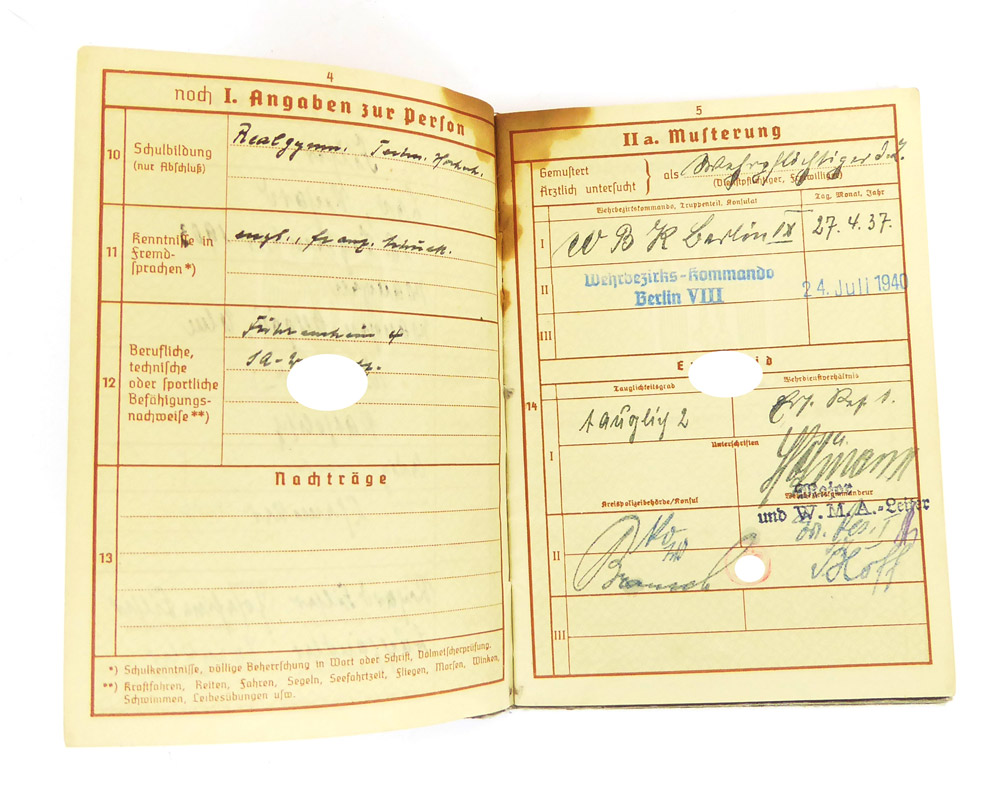 4
noch I. Angaben zur Person
10
Schulbildung
(nur Abschluß)
Realgymn. Techn. Hochsch.
11
Kenntnisse in
Fremd-
sprachen*)
engl., franz.
12
Berufliche,
technische
oder sportliche
Befähigungs-
nachweise**)
Führerschein
SA-
Nachträge
13
*) Schulkenntnisse, völlige Beherrschung in Wort oder Schrift, Dolmetscherprüfung.
**) Kraftfahren, Reiten, Fahren, Segeln, Seefahrtzeit, Fliegen, Morsen, Winken,
Schwimmen, Leibesübungen usw.
5
II a. Musterung
Gemustert
Ärztlich untersucht } als Wehrpflichtiger
(Dienstpflichtiger, Freiwilliger)
Wehrbezirkskommando, Truppenteil, Konsulat
Tag, Monat, Jahr
I
W B K Berlin IX
27.4.37.
II
Wehrbezirks-Kommando
Berlin VIII
24. Juli 1940
III
14
E d
Tauglichkeitsgrad
Wehrdienstverhältnis
I
tauglich 2
Ers. Res. 1.
Unterschriften
Kreispolizeibehörde/Konsul
Major
und W.M.A.-Leiter
II
III